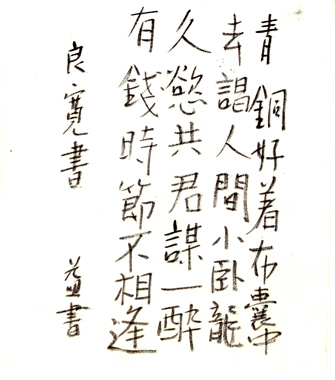 青銅好着布嚢中
去謁人間小卧龍
久慾共君謀一酔
有錢時節不相逢
良寛書
益書